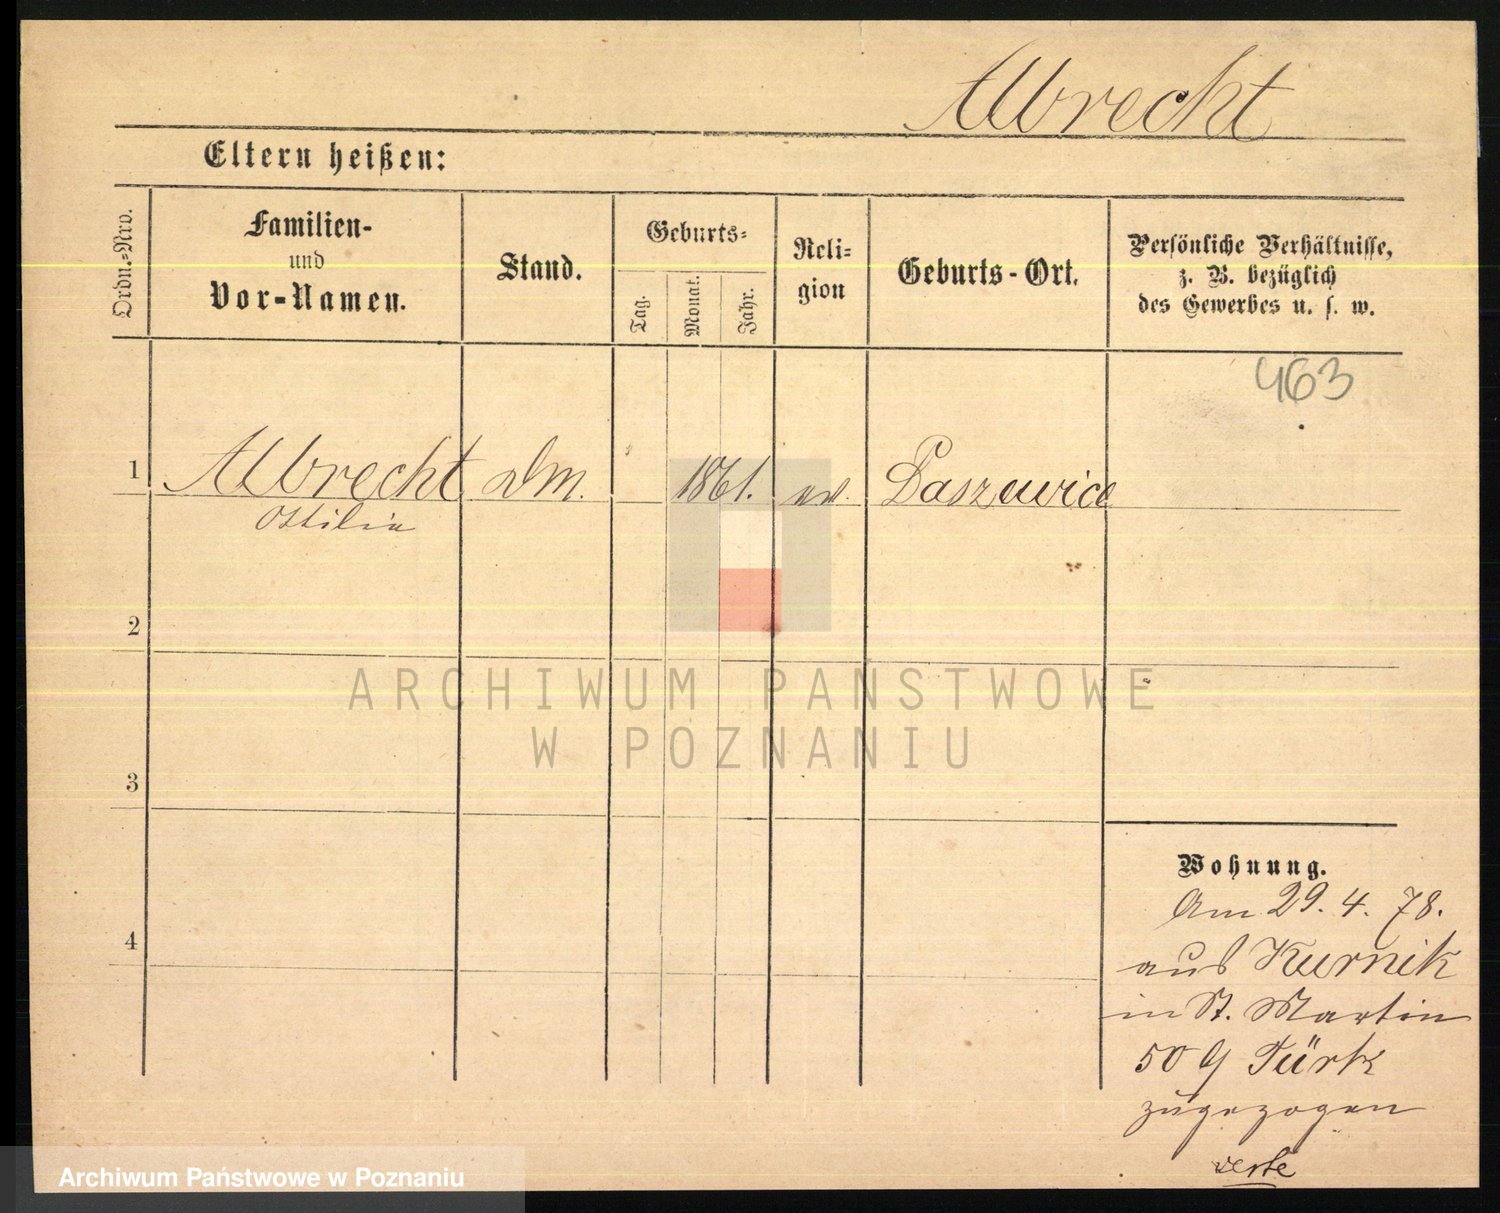 Albrecht
Eltern heißen:
Ordn.-Nro.
Familien-
und
Vor-Namen.
Stand.
Geburts-
Tag.
Monat.
Jahr.
Reli-
gion
Geburts-Ort.
Persönliche Verhältnisse,
z. B. bezüglich
des Gewerbes u. s. w.
463
1 Albrecht Dm. 1861. ev. Daszewice
Ottilie
2
ARCHIWUM PAŃSTWOWE
W POZNANIU
3
Wohnung.
Am 29. 4. 78.
4
aus Kurnik
in St. Martin
50 Türk
zugezogen
verte
Archiwum Państwowe w Poznaniu